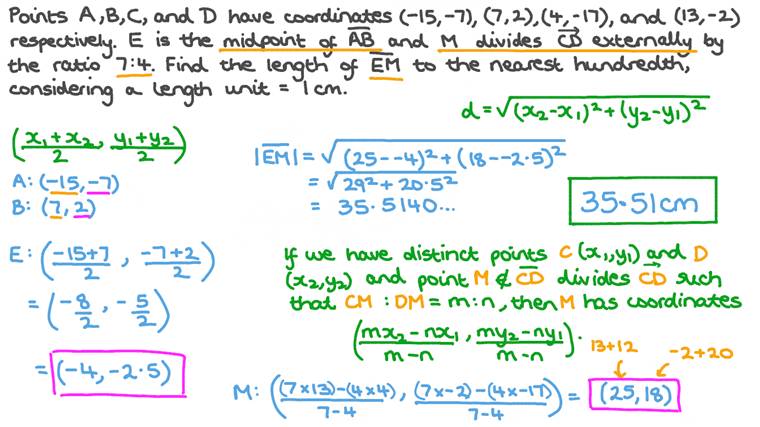 Points A,B,C, and D have coordinates (-15,-7), (7,2),(4,-17), and (13,-2)
respectively. E is the midpoint of AB and M divides CD externally by
the ratio 7:4. Find the length of EM to the nearest hundredth,
considering a length unit = 1cm.
d=√(x₂-x₁)²+(y₂-y₁)²
(x₁+x₂/2, y₁+y₂/2)
A: (-15,-7)
B: (7,2)
E: (-15+7/2, -7+2/2)
= (-8/2, -5/2)
= (-4,-2·5)
|EM| = √(25--4)²+(18--2·5)²
= √29²+20·5²
= 35·5140...
35·51cm
If we have distinct points C(x₁,y₁) and D
(x₂,y₂) and point M∉CD divides CD such
that CM:DM=m:n, then M has coordinates
(mx₂-nx₁/m-n, my₂-ny₁/m-n).
13+12
-2+20
M: ((7×13)-(4×4)/7-4, (7×-2)-(4×-17)/7-4) = (25,18)